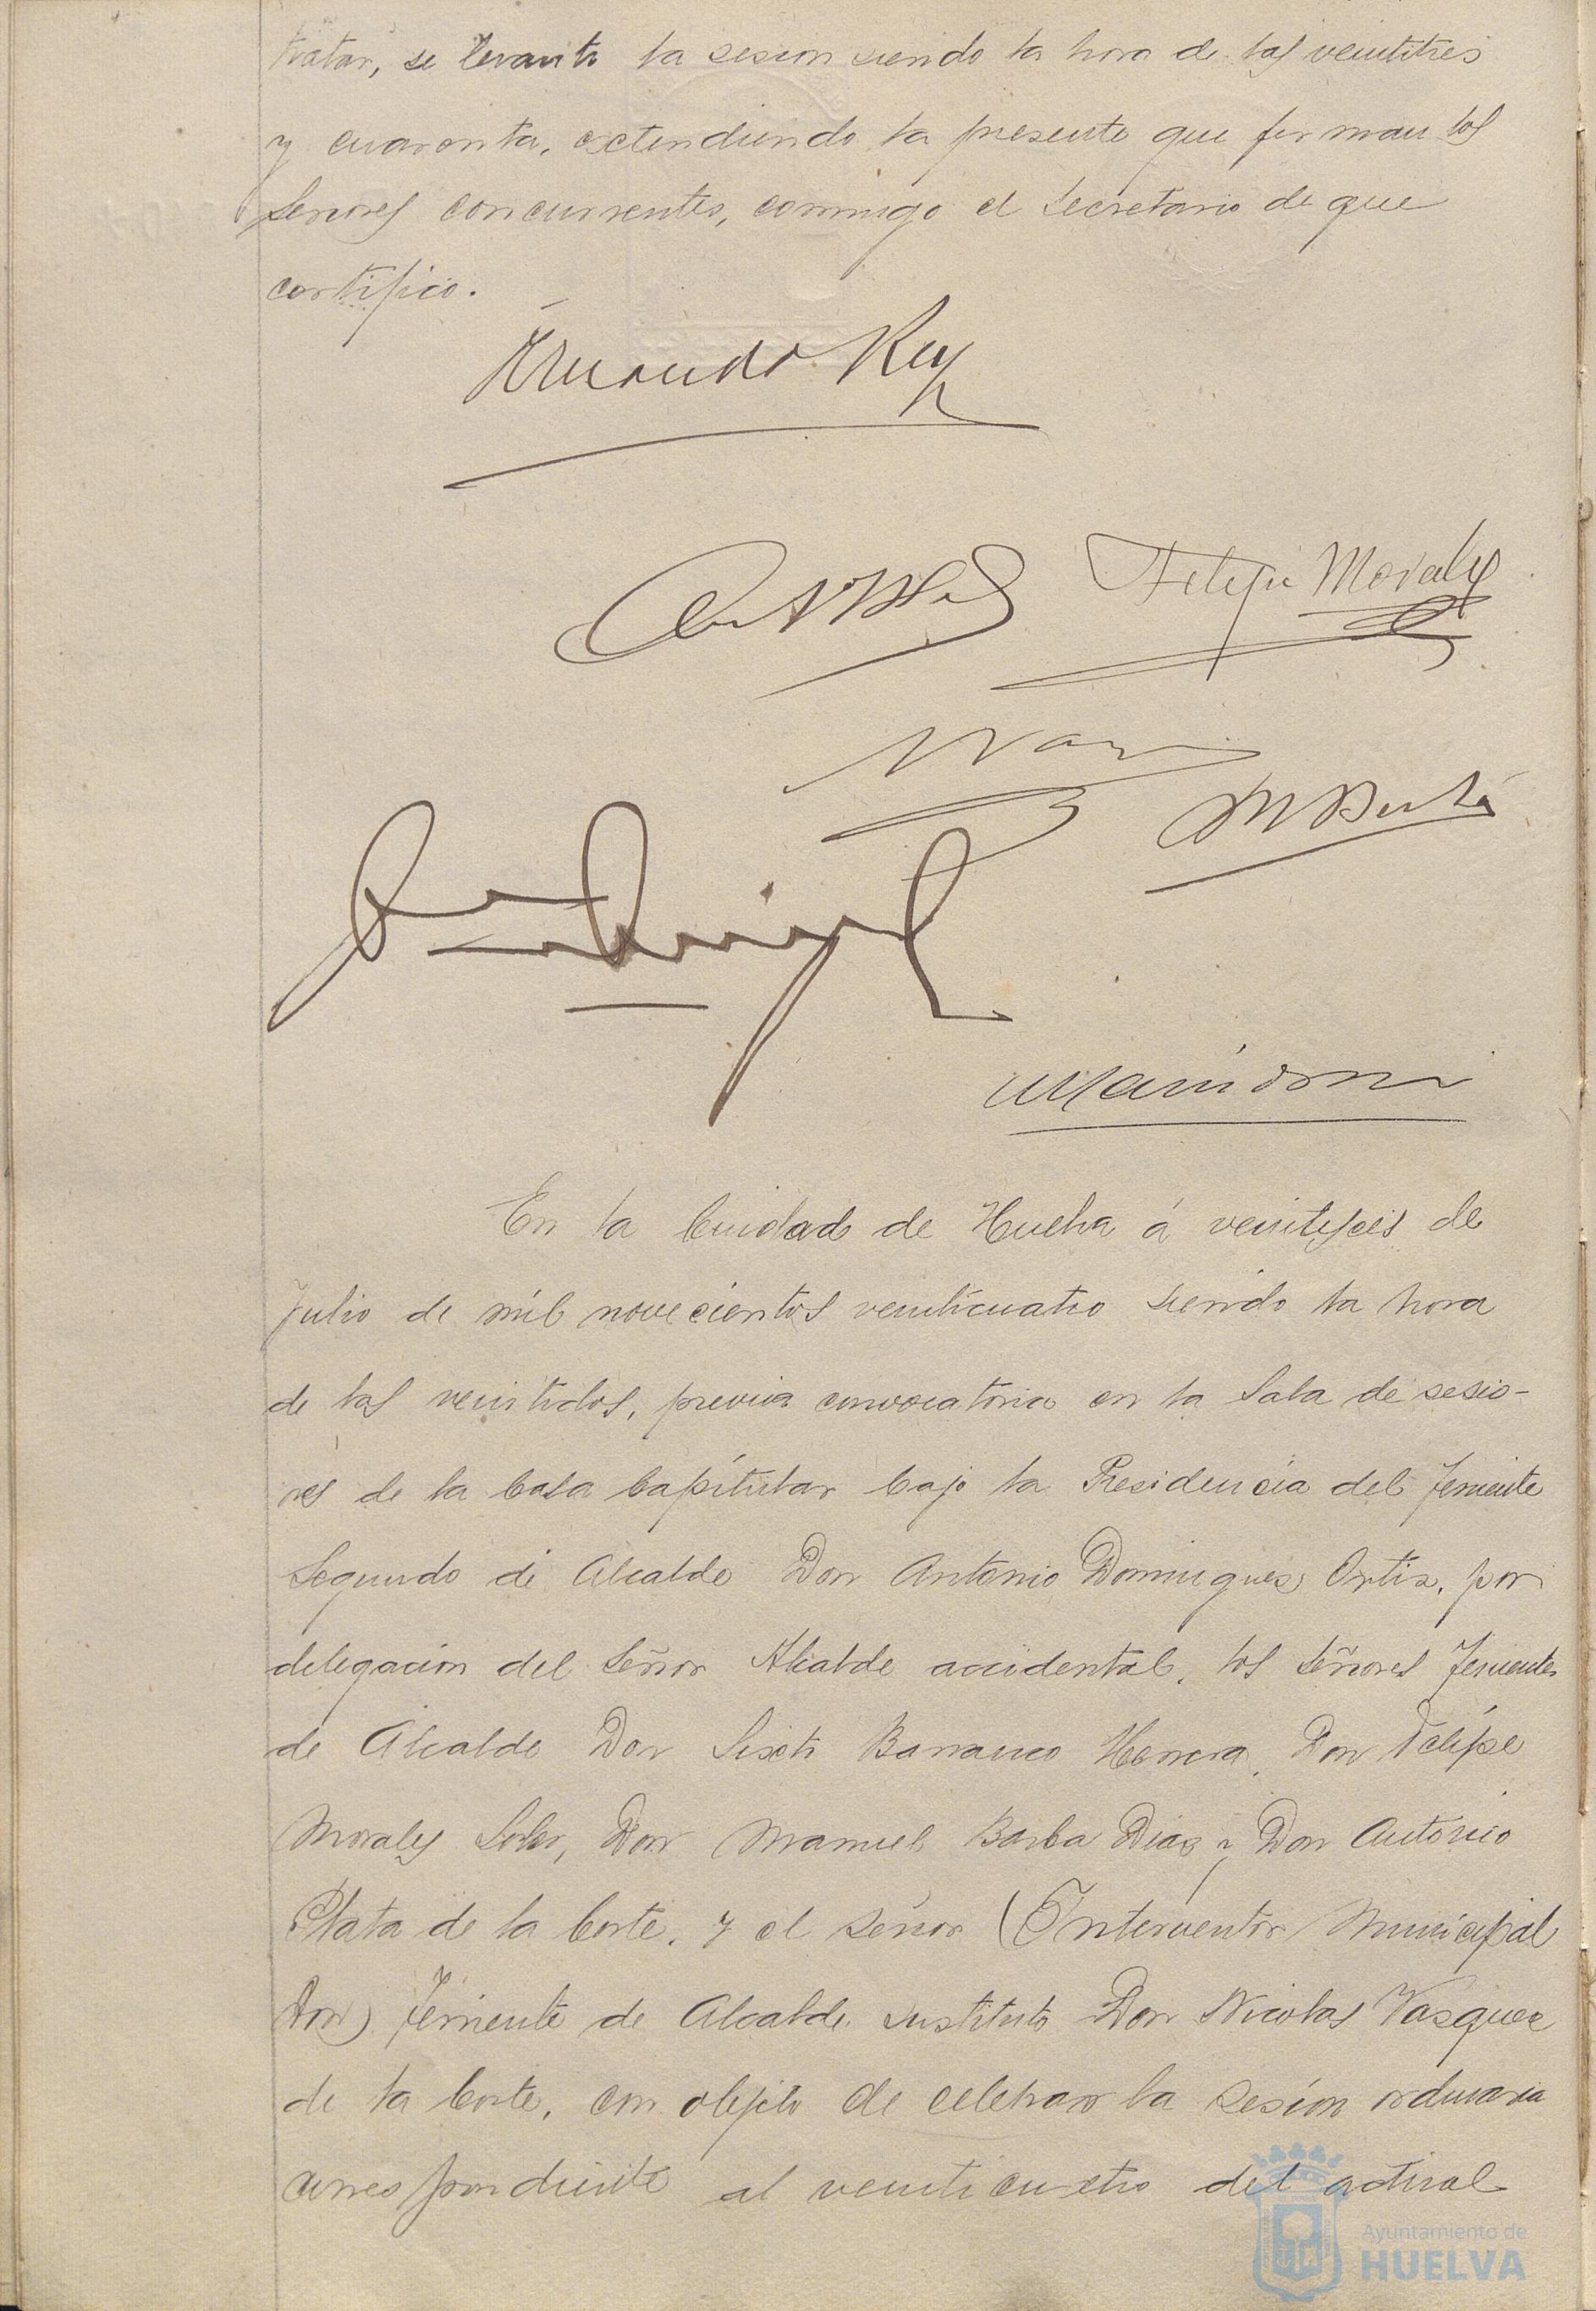 tratar, se levantó la sesion siendo la hora de las veintitres
y cuarenta, extendiendo la presente que firman los
Señores concurrentes, conmigo el Secretario de que
certifico.
Felipe Morales
En la Ciudad de Huelva á veintiseis de
Julio de mil novecientos veinticuatro siendo la hora
de las veintidos, previa convocatoria en la Sala de sesio-
nes de la Casa Capitular bajo la Presidencia del Teniente
Segundo de Alcalde Don Antonio Dominguez Ortiz, por
delegacion del Señor Alcalde accidental, los Señores Tenientes
de Alcalde Don Sixto Barranco Herrera, Don Felipe
Morales Soler, Don Manuel Barba Diaz y Don Antonio
Plata de la Corte, y el señor (Interventor Municipal
Don) Teniente de Alcalde sustituto Don Nicolas Vazquez
de la Corte, con objeto de celebrar la sesion ordinaria
correspondiente al veinticuatro del actual
Ayuntamiento de
HUELVA